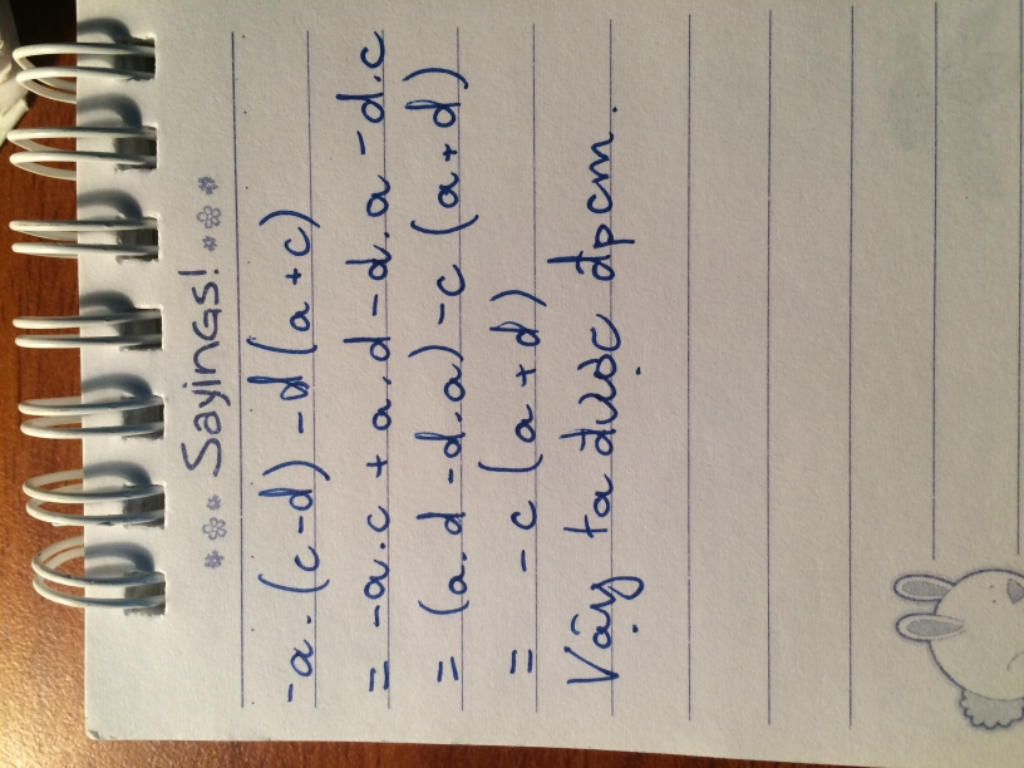 Sayings!
-a.(c-d)-d(a+c)
= -a.c+a.d-d.a-d.c
= (a.d-d.a)-c(a+d)
= -c(a+d)
Vậy ta được đpcm.